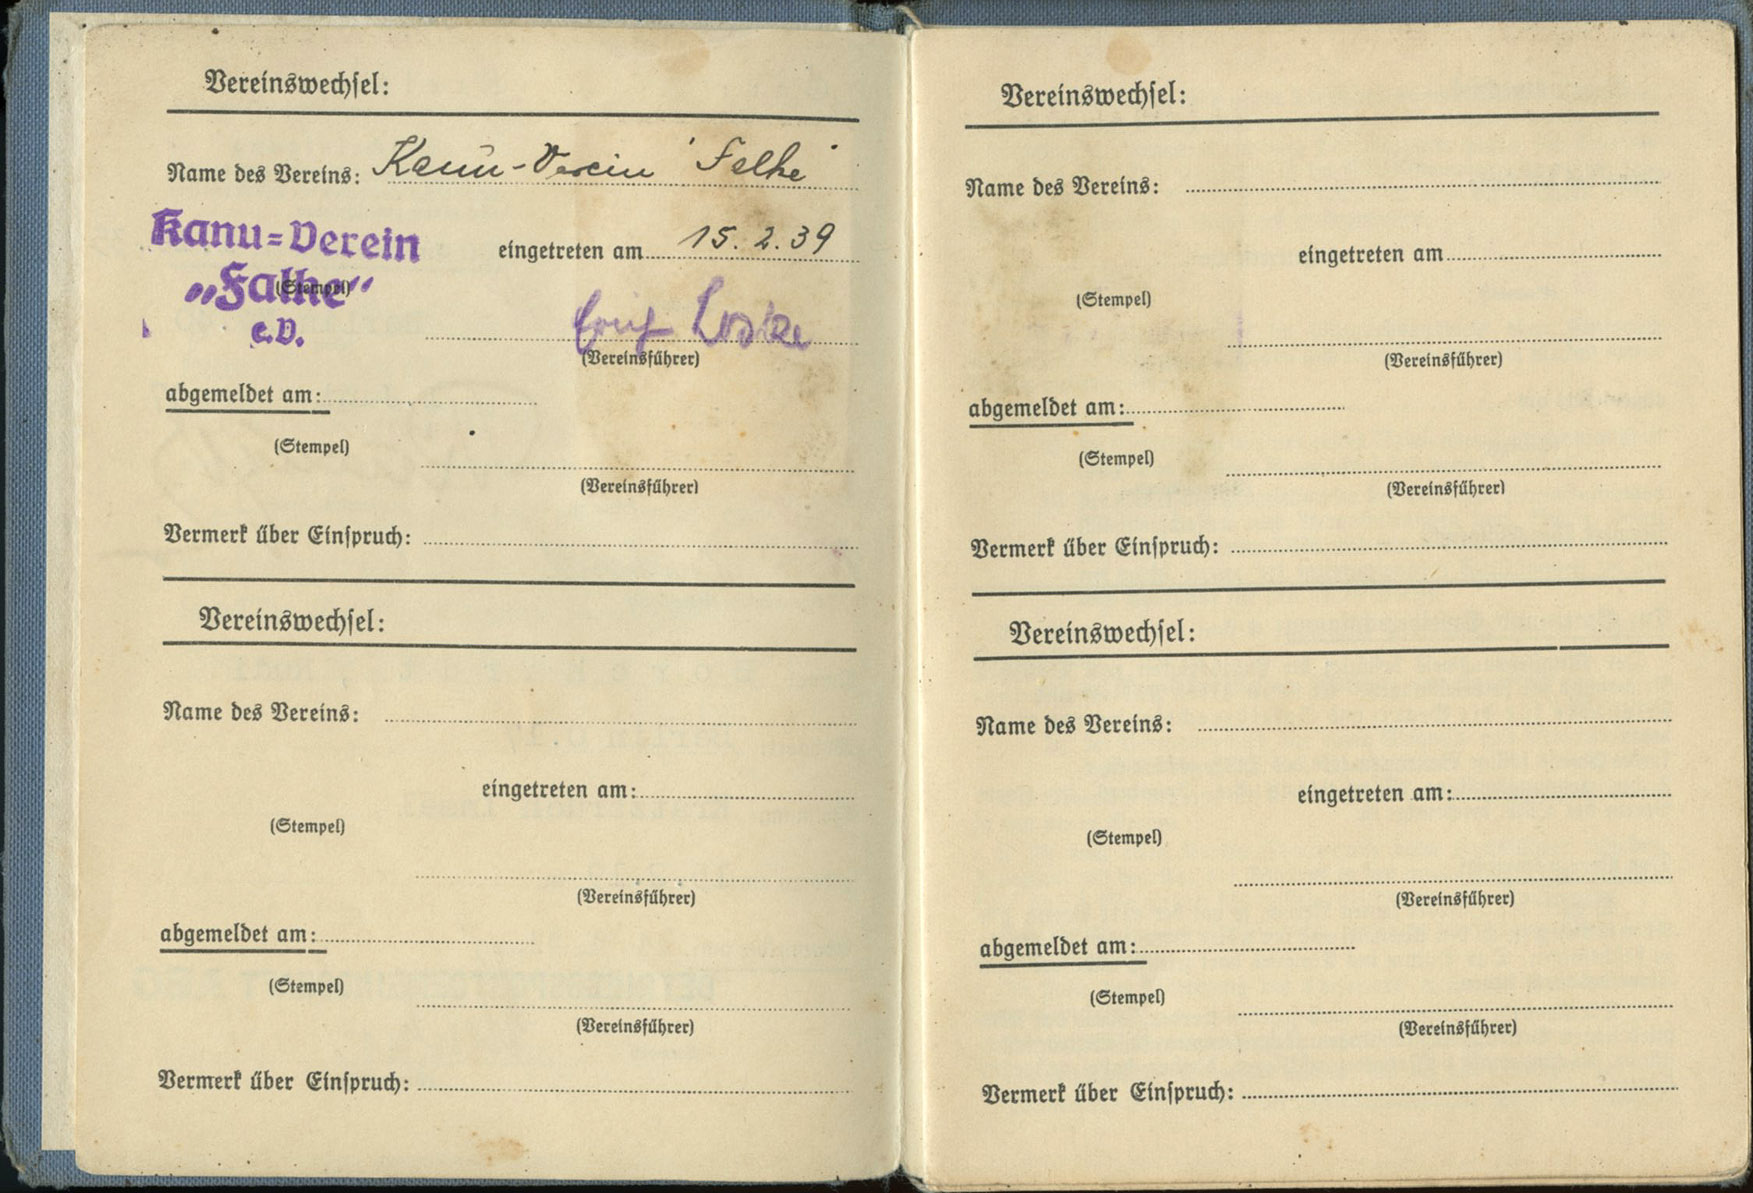 Vereinswechsel:
Name des Vereins: Kanu-Verein "Falke"
Kanu=Verein
eingetreten am 15. 2. 39
„Falke“
(Stempel)
e.V.
(Vereinsführer)
abgemeldet am:
(Stempel)
(Vereinsführer)
Vermerk über Einspruch:
Vereinswechsel:
Name des Vereins:
eingetreten am:
(Stempel)
(Vereinsführer)
abgemeldet am:
(Stempel)
(Vereinsführer)
Vermerk über Einspruch:
Vereinswechsel:
Name des Vereins:
eingetreten am
(Stempel)
(Vereinsführer)
abgemeldet am:
(Stempel)
(Vereinsführer)
Vermerk über Einspruch:
Vereinswechsel:
Name des Vereins:
eingetreten am:
(Stempel)
(Vereinsführer)
abgemeldet am:
(Stempel)
(Vereinsführer)
Vermerk über Einspruch: